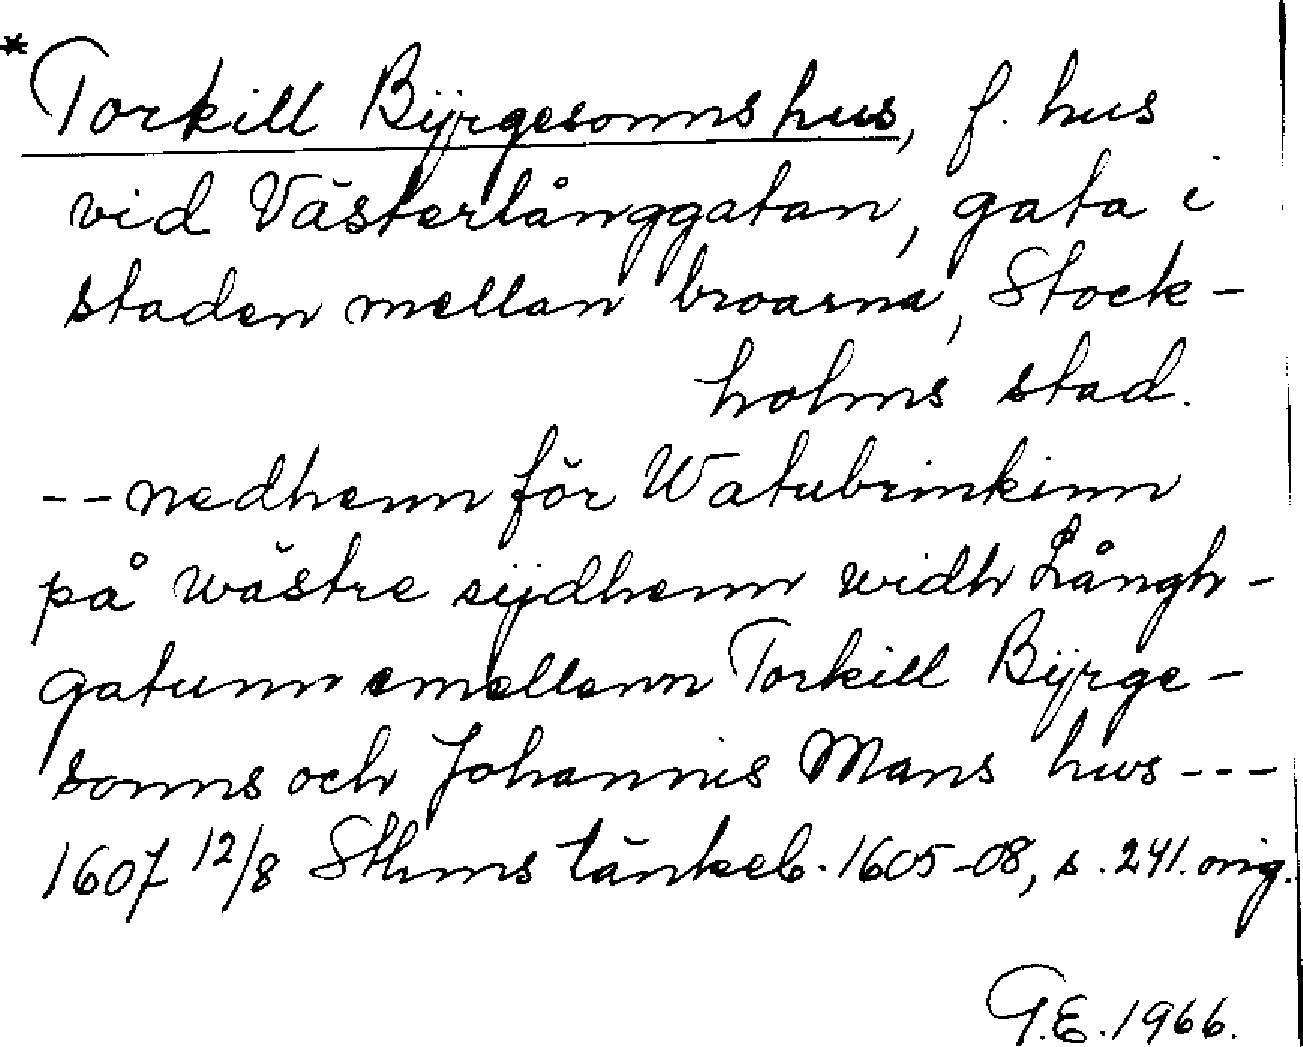 * Torkill Bÿrgesonns hus, f. hus
vid Västerlånggatan, gata i
staden mellan broarna, Stock-
holms stad.
-- nedhenn för Watubrinkinn
på wästre sÿdhenn widh Långh-
gatunn emellenn Torkill Bÿrge-
sonns och Johannis Mans hws ---
1607 12/8 Sthms tänkeb. 1605-08, s. 241. orig.
G.E. 1966.